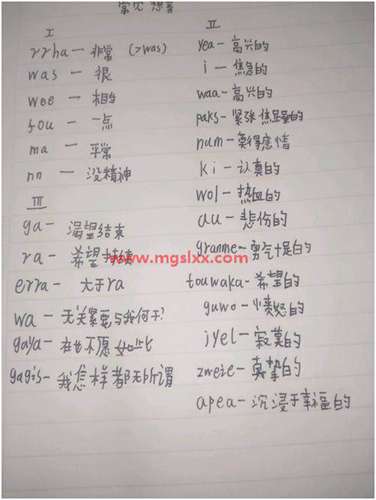 常见想音
I
rrha — 非常 (>was)
was — 很
wee — 相当
fou — 一点
ma — 平常
nn — 没精神
III
ga — 渴望结束
ra — 希望持续
erra — 大于ra
wa — 无关紧要与我何干?
gaya — 在也不愿如此
gagis — 我怎样都无所谓
II
yea — 高兴的
i — 焦急的
waa — 高兴的
paks — 紧张
num — 莫得感情
ki — 认真的
wol — 热血的
au — 悲伤的
granme — 勇气十足的
touwaka — 希望的
guwo — 愤怒的
iyel — 寂寞的
zweie — 真挚的
apea — 沉浸于幸福的
www.mgslxx.com